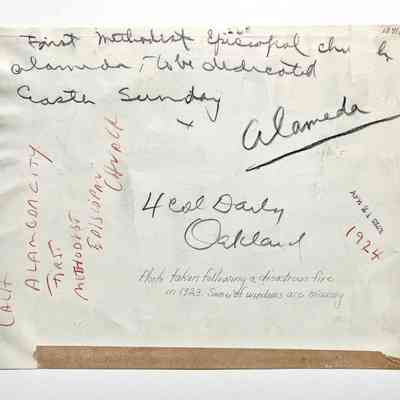 First Methodist Episcopal chu h
Alameda, to be dedicated
Easter Sunday
x
Alameda
4 col Daily
Oakland
1924
CALIF
ALAMEDA CITY
FIRST
METHODIST
EPISCOPAL
CHURCH
Photo taken following a disastrous fire
in 1923. Some windows are missing